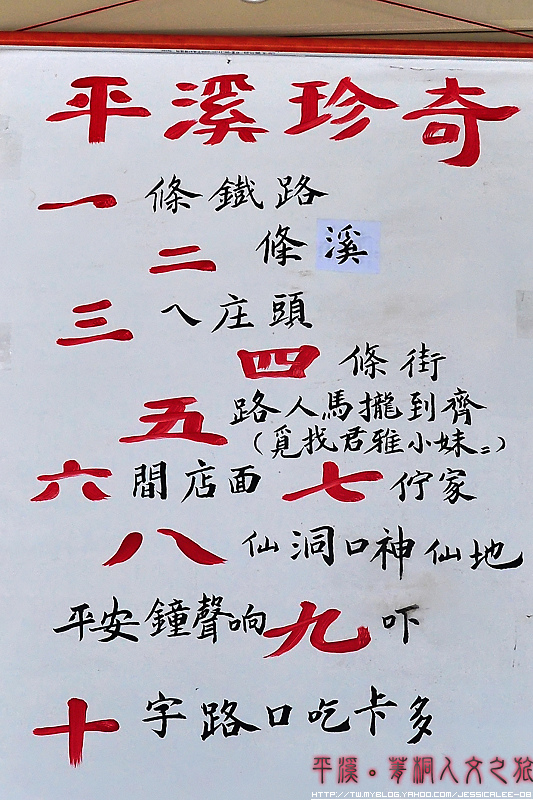 平溪珍奇
一 條鐵路
二 條溪
三 ㄟ庄頭
四 條街
五 路人馬攏到齊
(覓找君雅小妹=)
六 間店面 七 佇家
八 仙洞口神仙地
平安鐘聲响九吓
十 字路口吃卡多
平溪。菁桐人文之旅
HTTP://TW.MYBLOG.YAHOO.COM/JESSICALEE-08